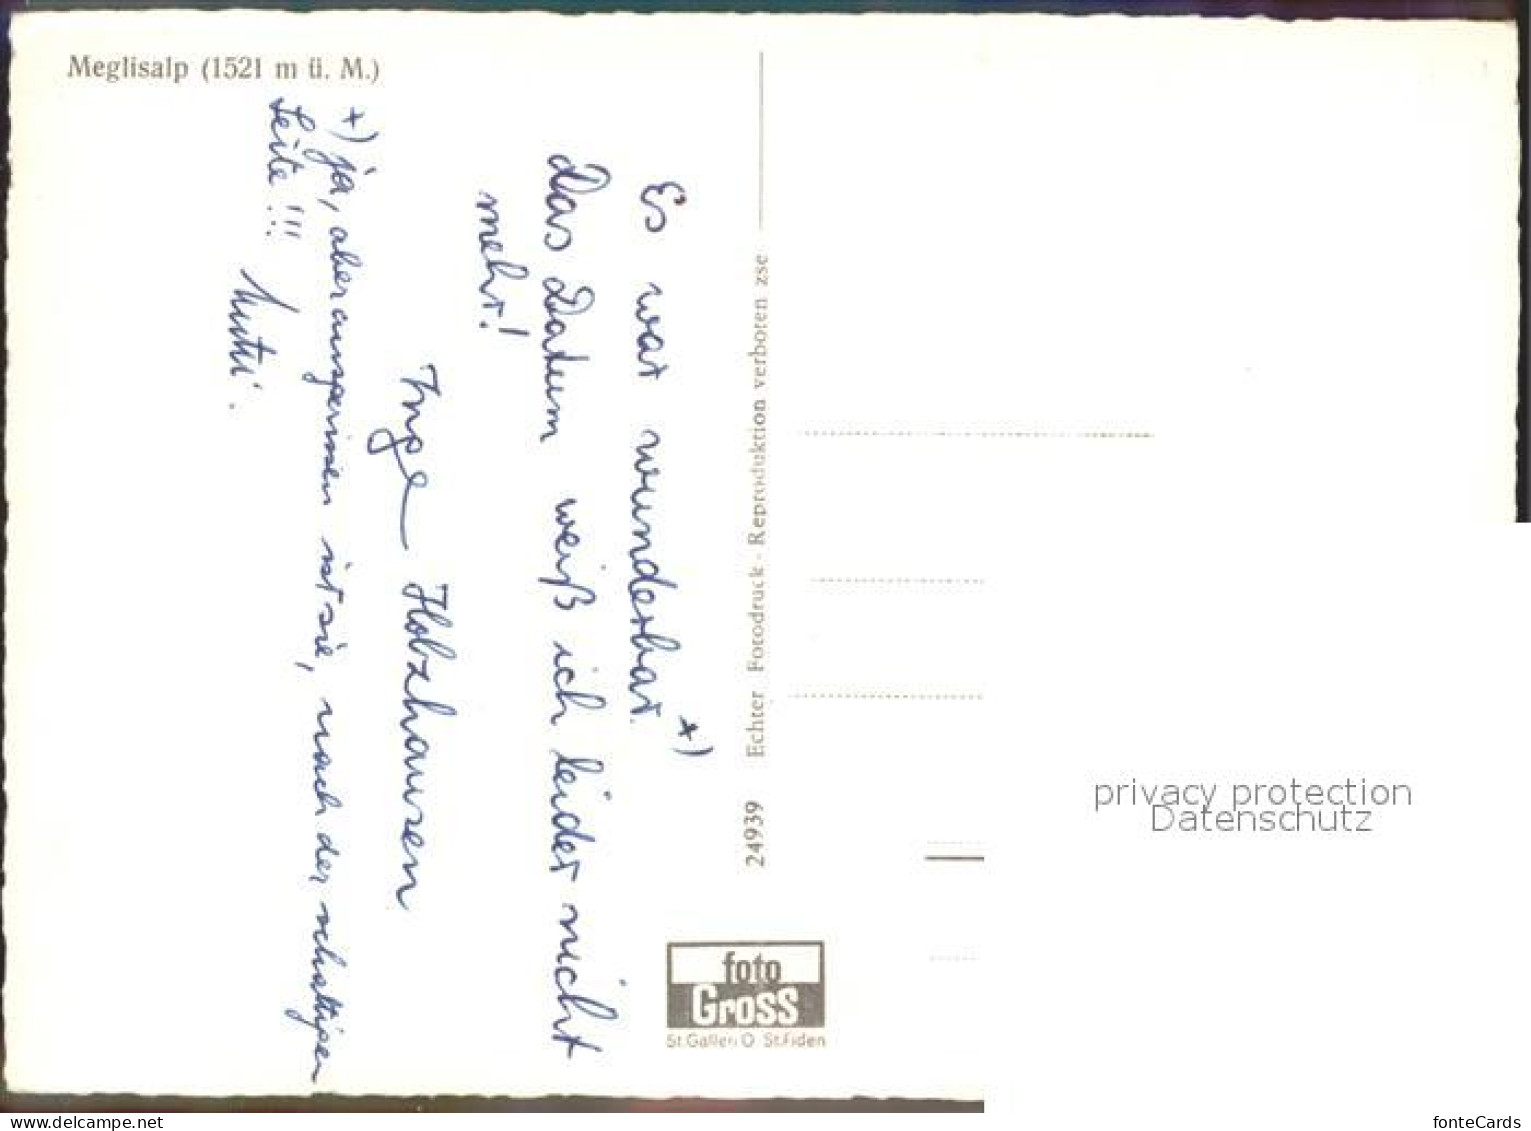 Meglisalp (1521 m ü. M.)
Es war wunderbar. +)
Das Datum weiß ich leider nicht
mehr!
Inge Holzhausen
+) ja, aber ausgerissen ist sie, nach der schattigen
Seite!!!
24939 Echter Fotodruck - Reproduktion verboten zse
foto
Gross
St.Gallen O St.Fiden
privacy protection
Datenschutz
www.delcampe.net
fonteCards